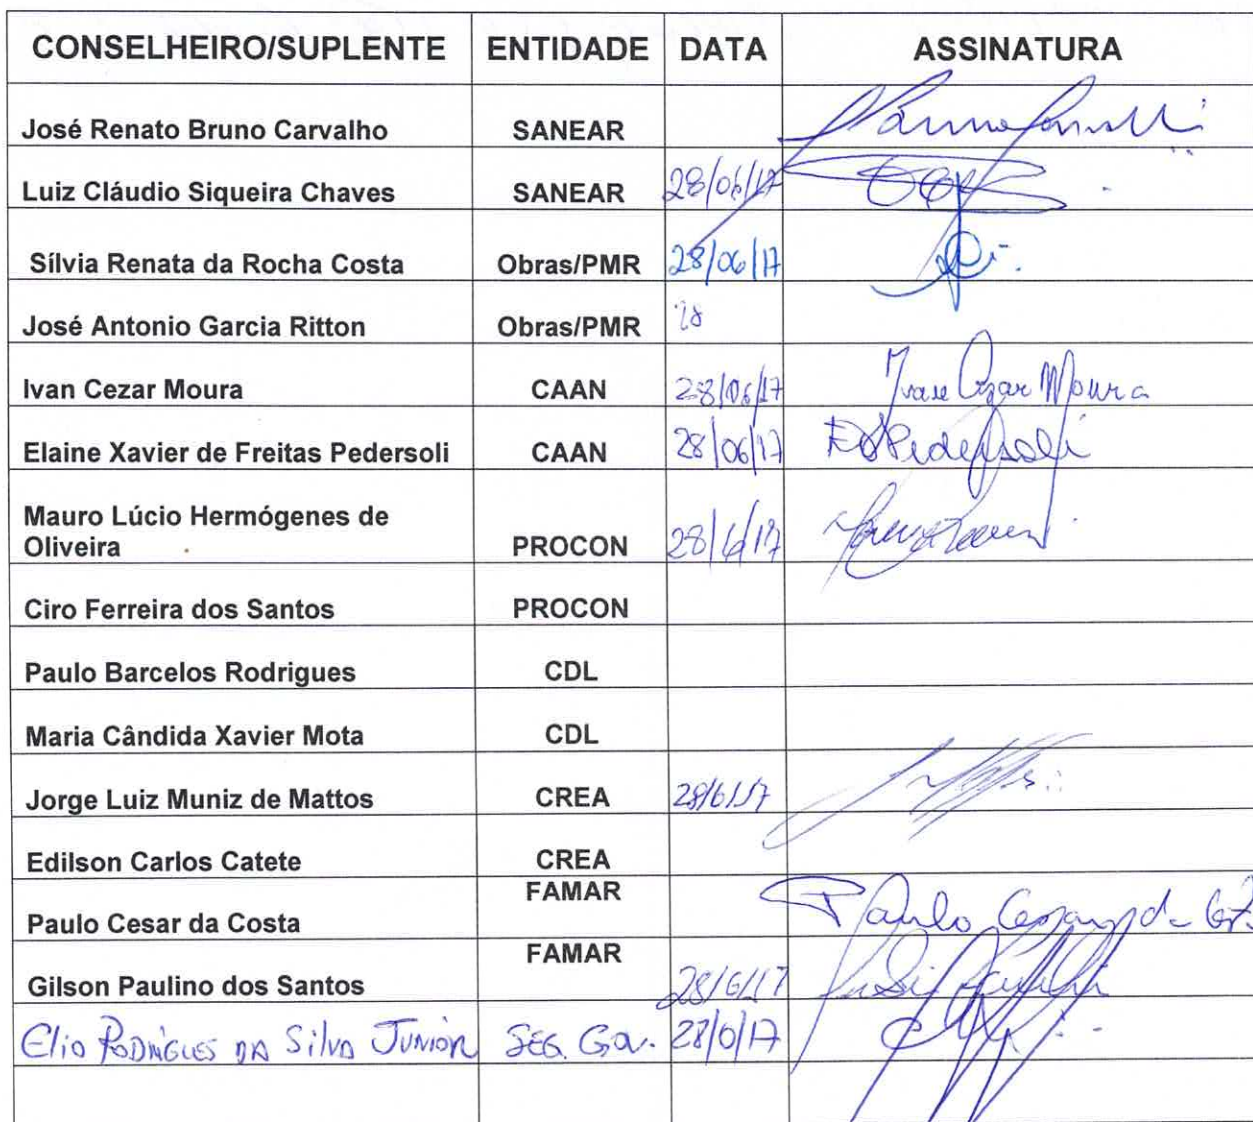 CONSELHEIRO/SUPLENTE ENTIDADE DATA ASSINATURA
José Renato Bruno Carvalho SANEAR
Luiz Cláudio Siqueira Chaves SANEAR 28/06/17
Sílvia Renata da Rocha Costa Obras/PMR 28/06/17
José Antonio Garcia Ritton Obras/PMR
Ivan Cezar Moura CAAN 28/06/17 Ivan Cezar Moura
Elaine Xavier de Freitas Pedersoli CAAN 28/06/17 Pedersoli
Mauro Lúcio Hermógenes de
Oliveira PROCON 28/6/17
Ciro Ferreira dos Santos PROCON
Paulo Barcelos Rodrigues CDL
Maria Cândida Xavier Mota CDL
Jorge Luiz Muniz de Mattos CREA 28/6/17
Edilson Carlos Catete CREA
Paulo Cesar da Costa FAMAR Paulo Cesar da
Gilson Paulino dos Santos FAMAR 28/6/17
Elio Rodrigues da Silva Junior SEG. Gov. 28/6/17